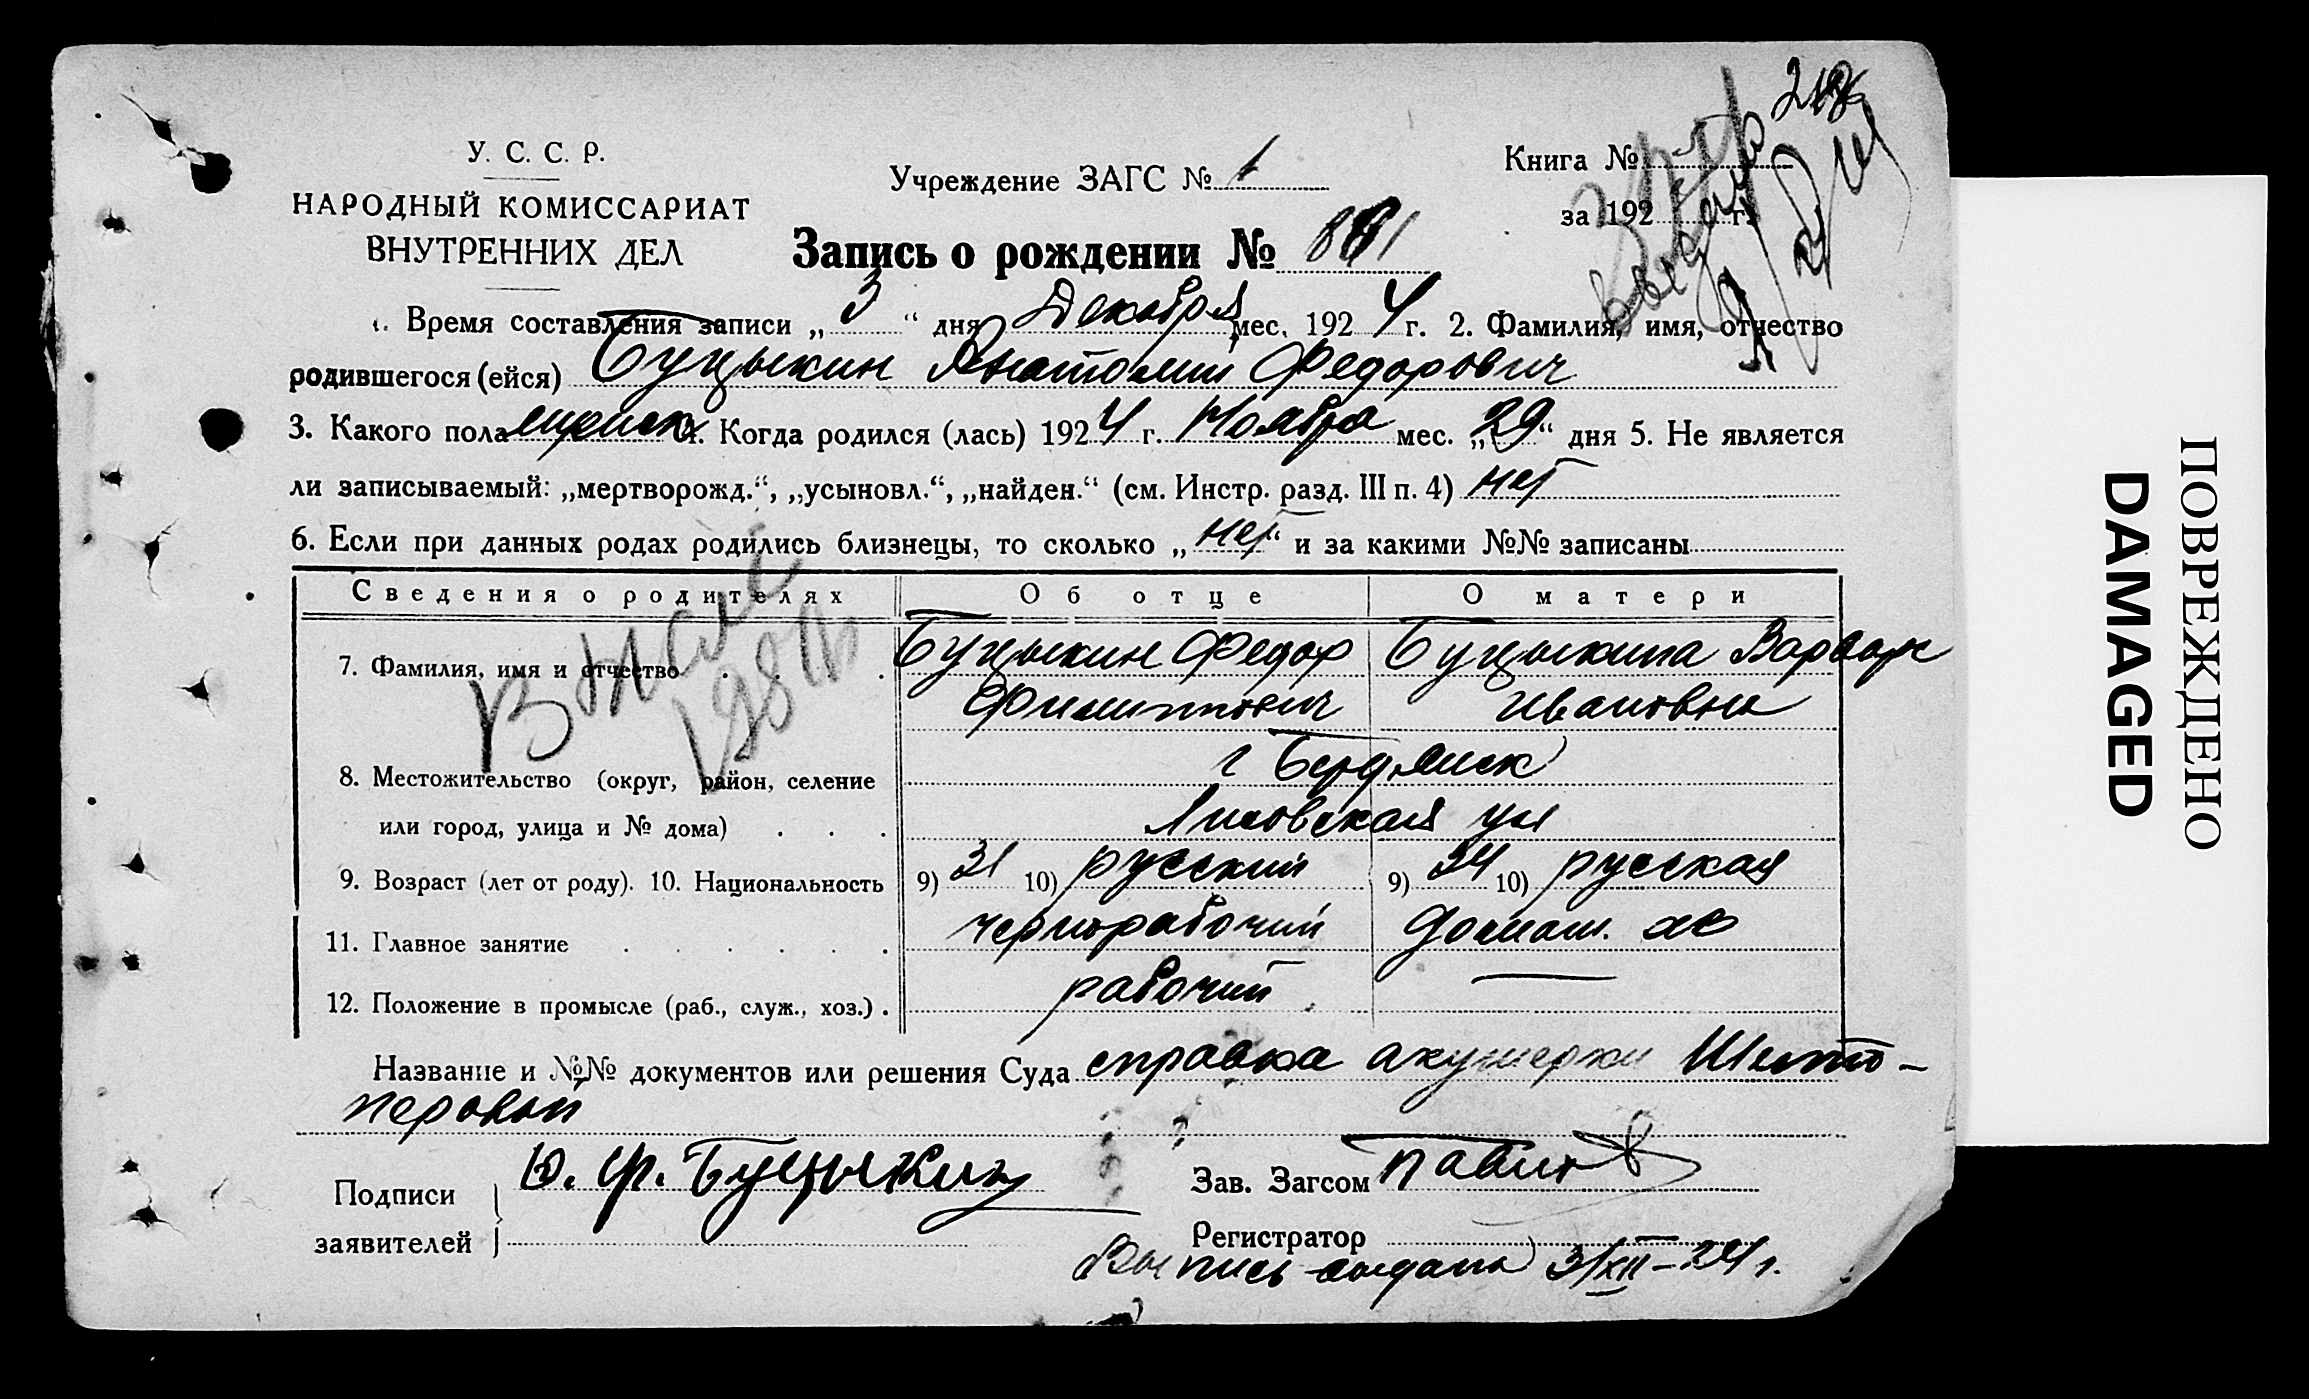 218
У. С. С. Р.
НАРОДНЫЙ КОМИССАРИАТ
ВНУТРЕННИХ ДЕЛ
Учреждение ЗАГС № 1
Книга №
за 192 г.
Запись о рождении № 881
1. Время составления записи „ 3 “ дня Декабря мес. 192 4 г. 2. Фамилия, имя, отчество
родившегося (ейся) Буцыкин Анатолий Федорович
3. Какого пола мужск 4. Когда родился (лась) 192 4 г. Ноября мес. „ 29 “ дня 5. Не является
ли записываемый: „мертворожд.“, „усыновл.“, „найден.“ (см. Инстр. разд. III п. 4) нет
6. Если при данных родах родились близнецы, то сколько „ нет “ и за какими №№ записаны
Сведения о родителях Об отце О матери
7. Фамилия, имя и отчество Буцыкин Федор Буцыкина Варвара
Филиппович Ивановна
8. Местожительство (округ, район, селение г Бердянск
или город, улица и № дома) Лисовская ул
9. Возраст (лет от роду). 10. Национальность 9) 31 10) русский 9) 34 10) русская
11. Главное занятие чернорабочий домаш. хо
12. Положение в промысле (раб., служ., хоз.) рабочий —
Название и №№ документов или решения Суда справка акушерки
Подписи
заявителей
Ф. Буцыкин
Зав. Загсом Павлов
Регистратор
Выпись выдана 3/XII-24 г.
ПОВРЕЖДЕНО
DAMAGED